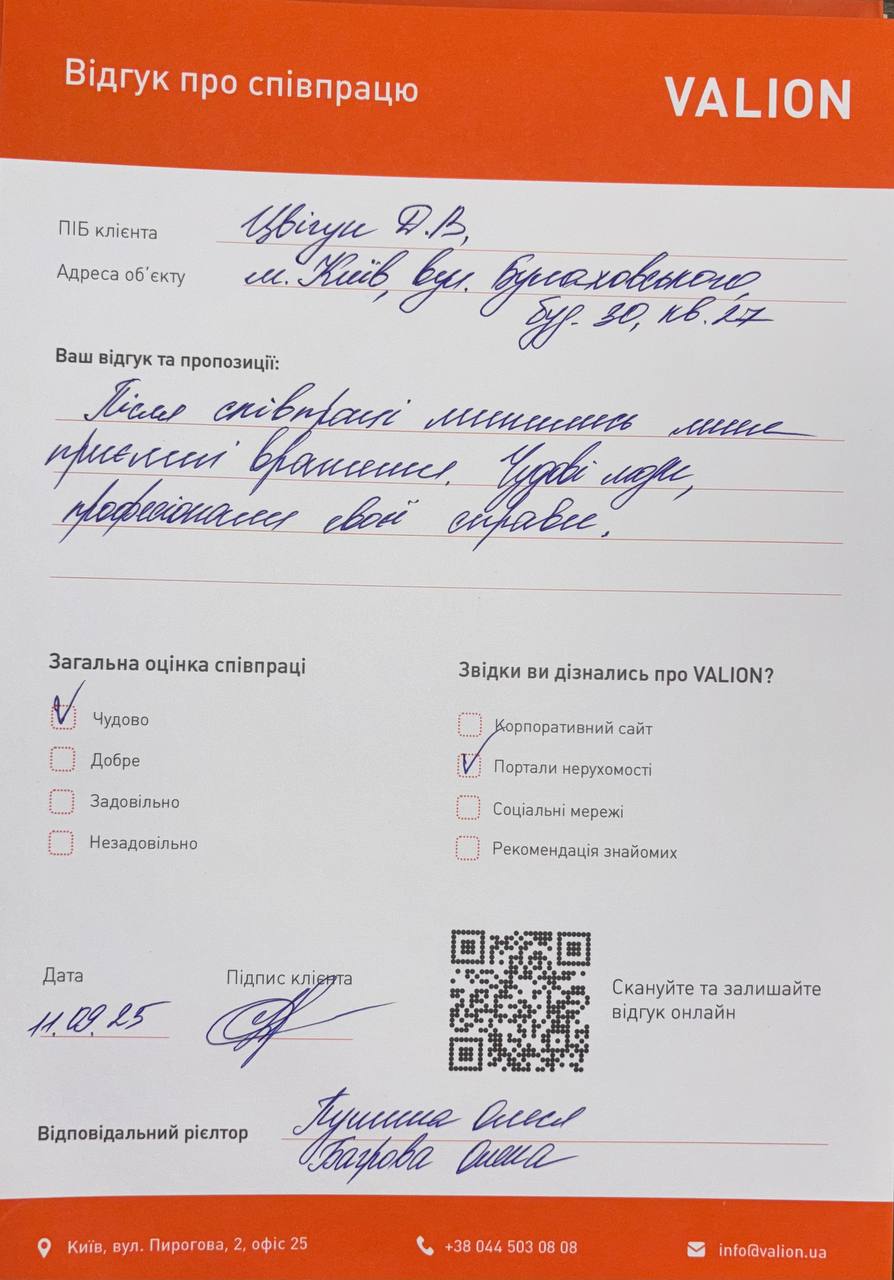 Відгук про співпрацю
VALION
ПІБ клієнта Цвігун Д.В,
Адреса об'єкту м. Київ, вул. Булаховського,
буд. 30, кв. 27
Ваш відгук та пропозиції:
Після співпраці лишились лише
приємні враження. Чудові люди,
професіонали своєї справи.
Загальна оцінка співпраці
Чудово
Добре
Задовільно
Незадовільно
Звідки ви дізнались про VALION?
Корпоративний сайт
Портали нерухомості
Соціальні мережі
Рекомендація знайомих
Дата
11.09.25
Підпис клієнта
Скануйте та залишайте
відгук онлайн
Відповідальний рієлтор Олеся
Багрова Олена
Київ, вул. Пирогова, 2, офіс 25
+38 044 503 08 08
info@valion.ua